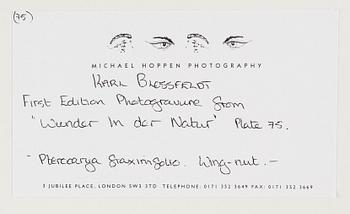 (75)
MICHAEL HOPPEN PHOTOGRAPHY
KARL BLOSSFELDT
First Edition Photogravure from
"Wunder In der Natur" Plate 75.
"Pterocarya fraxinifolio. Wing-nut. -
3 JUBILEE PLACE, LONDON SW3 3TD TELEPHONE: 0171 352 3649 FAX: 0171 352 3669